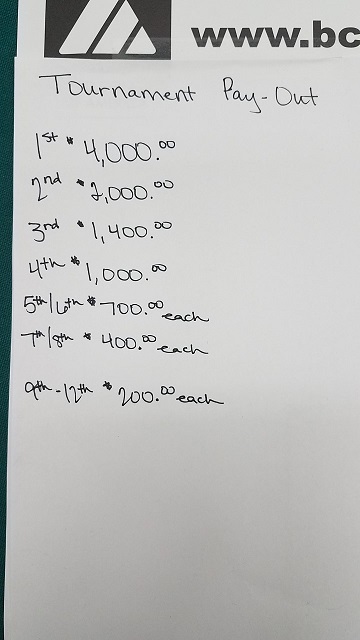 www.bc
Tournament Pay-Out
1st $4,000.00
2nd $2,000.00
3rd $1,400.00
4th $1,000.00
5th/6th $700.00 each
7th/8th $400.00 each
9th-12th $200.00 each